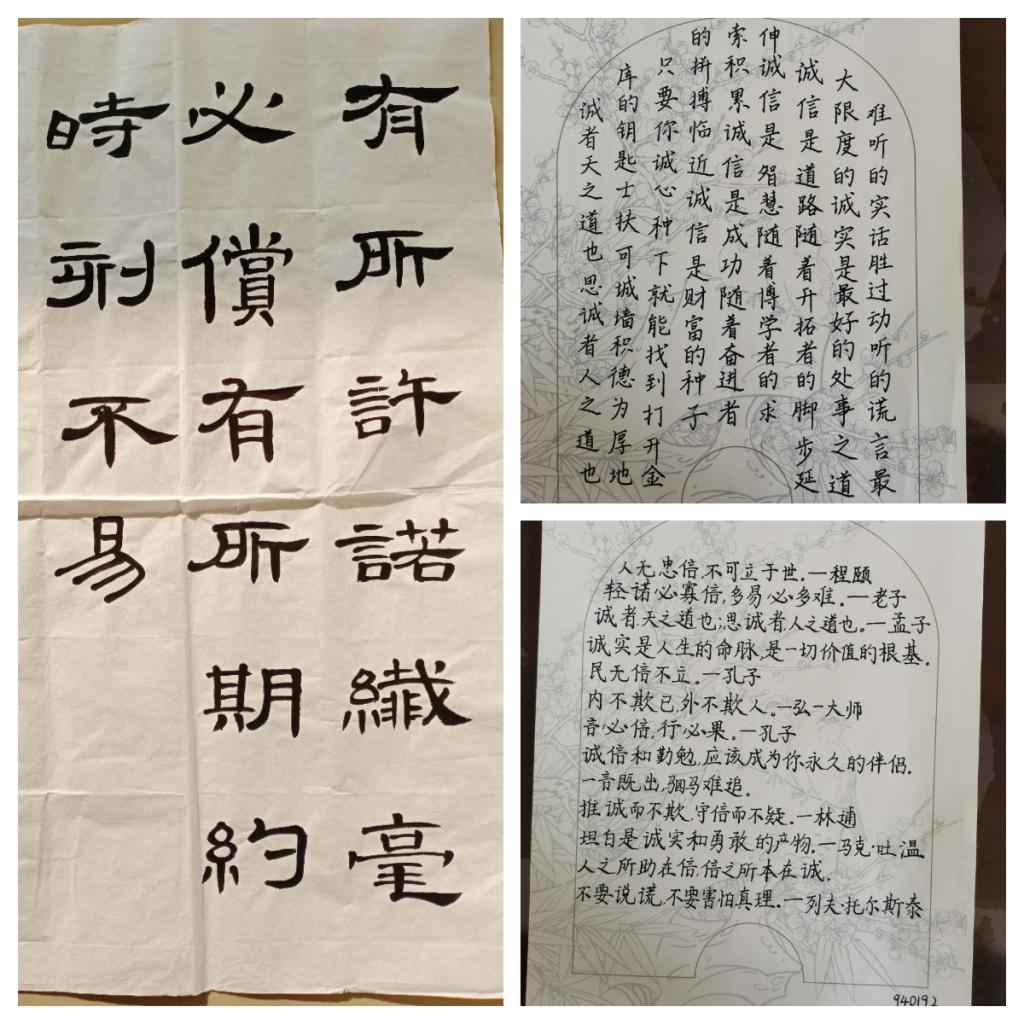 有所許諾纖毫
必償有所期約
時刻不易
难听的实话胜过动听的谎言最
大限度的诚实是最好的处事之道
诚信是道路随着开拓者的脚步延
伸诚信是智慧随着博学者的求
索积累诚信是成功随着奋进者
的拼搏临近诚信是财富的种子
只要你诚心种下就能找到打开金
库的钥匙士扶可城墙积德为厚地
诚者天之道也思诚者人之道也
人无忠信,不可立于世.—程颐
轻诺必寡信,多易必多难.—老子
诚者,天之道也;思诚者,人之道也.—孟子
诚实是人生的命脉,是一切价值的根基.
民无信不立.—孔子
内不欺已,外不欺人.—弘一大师
言必信,行必果.—孔子
诚信和勤勉,应该成为你永久的伴侣.
一言既出,驷马难追.
推诚而不欺,守信而不疑.—林逋
坦白是诚实和勇敢的产物.—马克·吐温
人之所助在信,信之所本在诚.
不要说谎,不要害怕真理.—列夫·托尔斯泰
940192